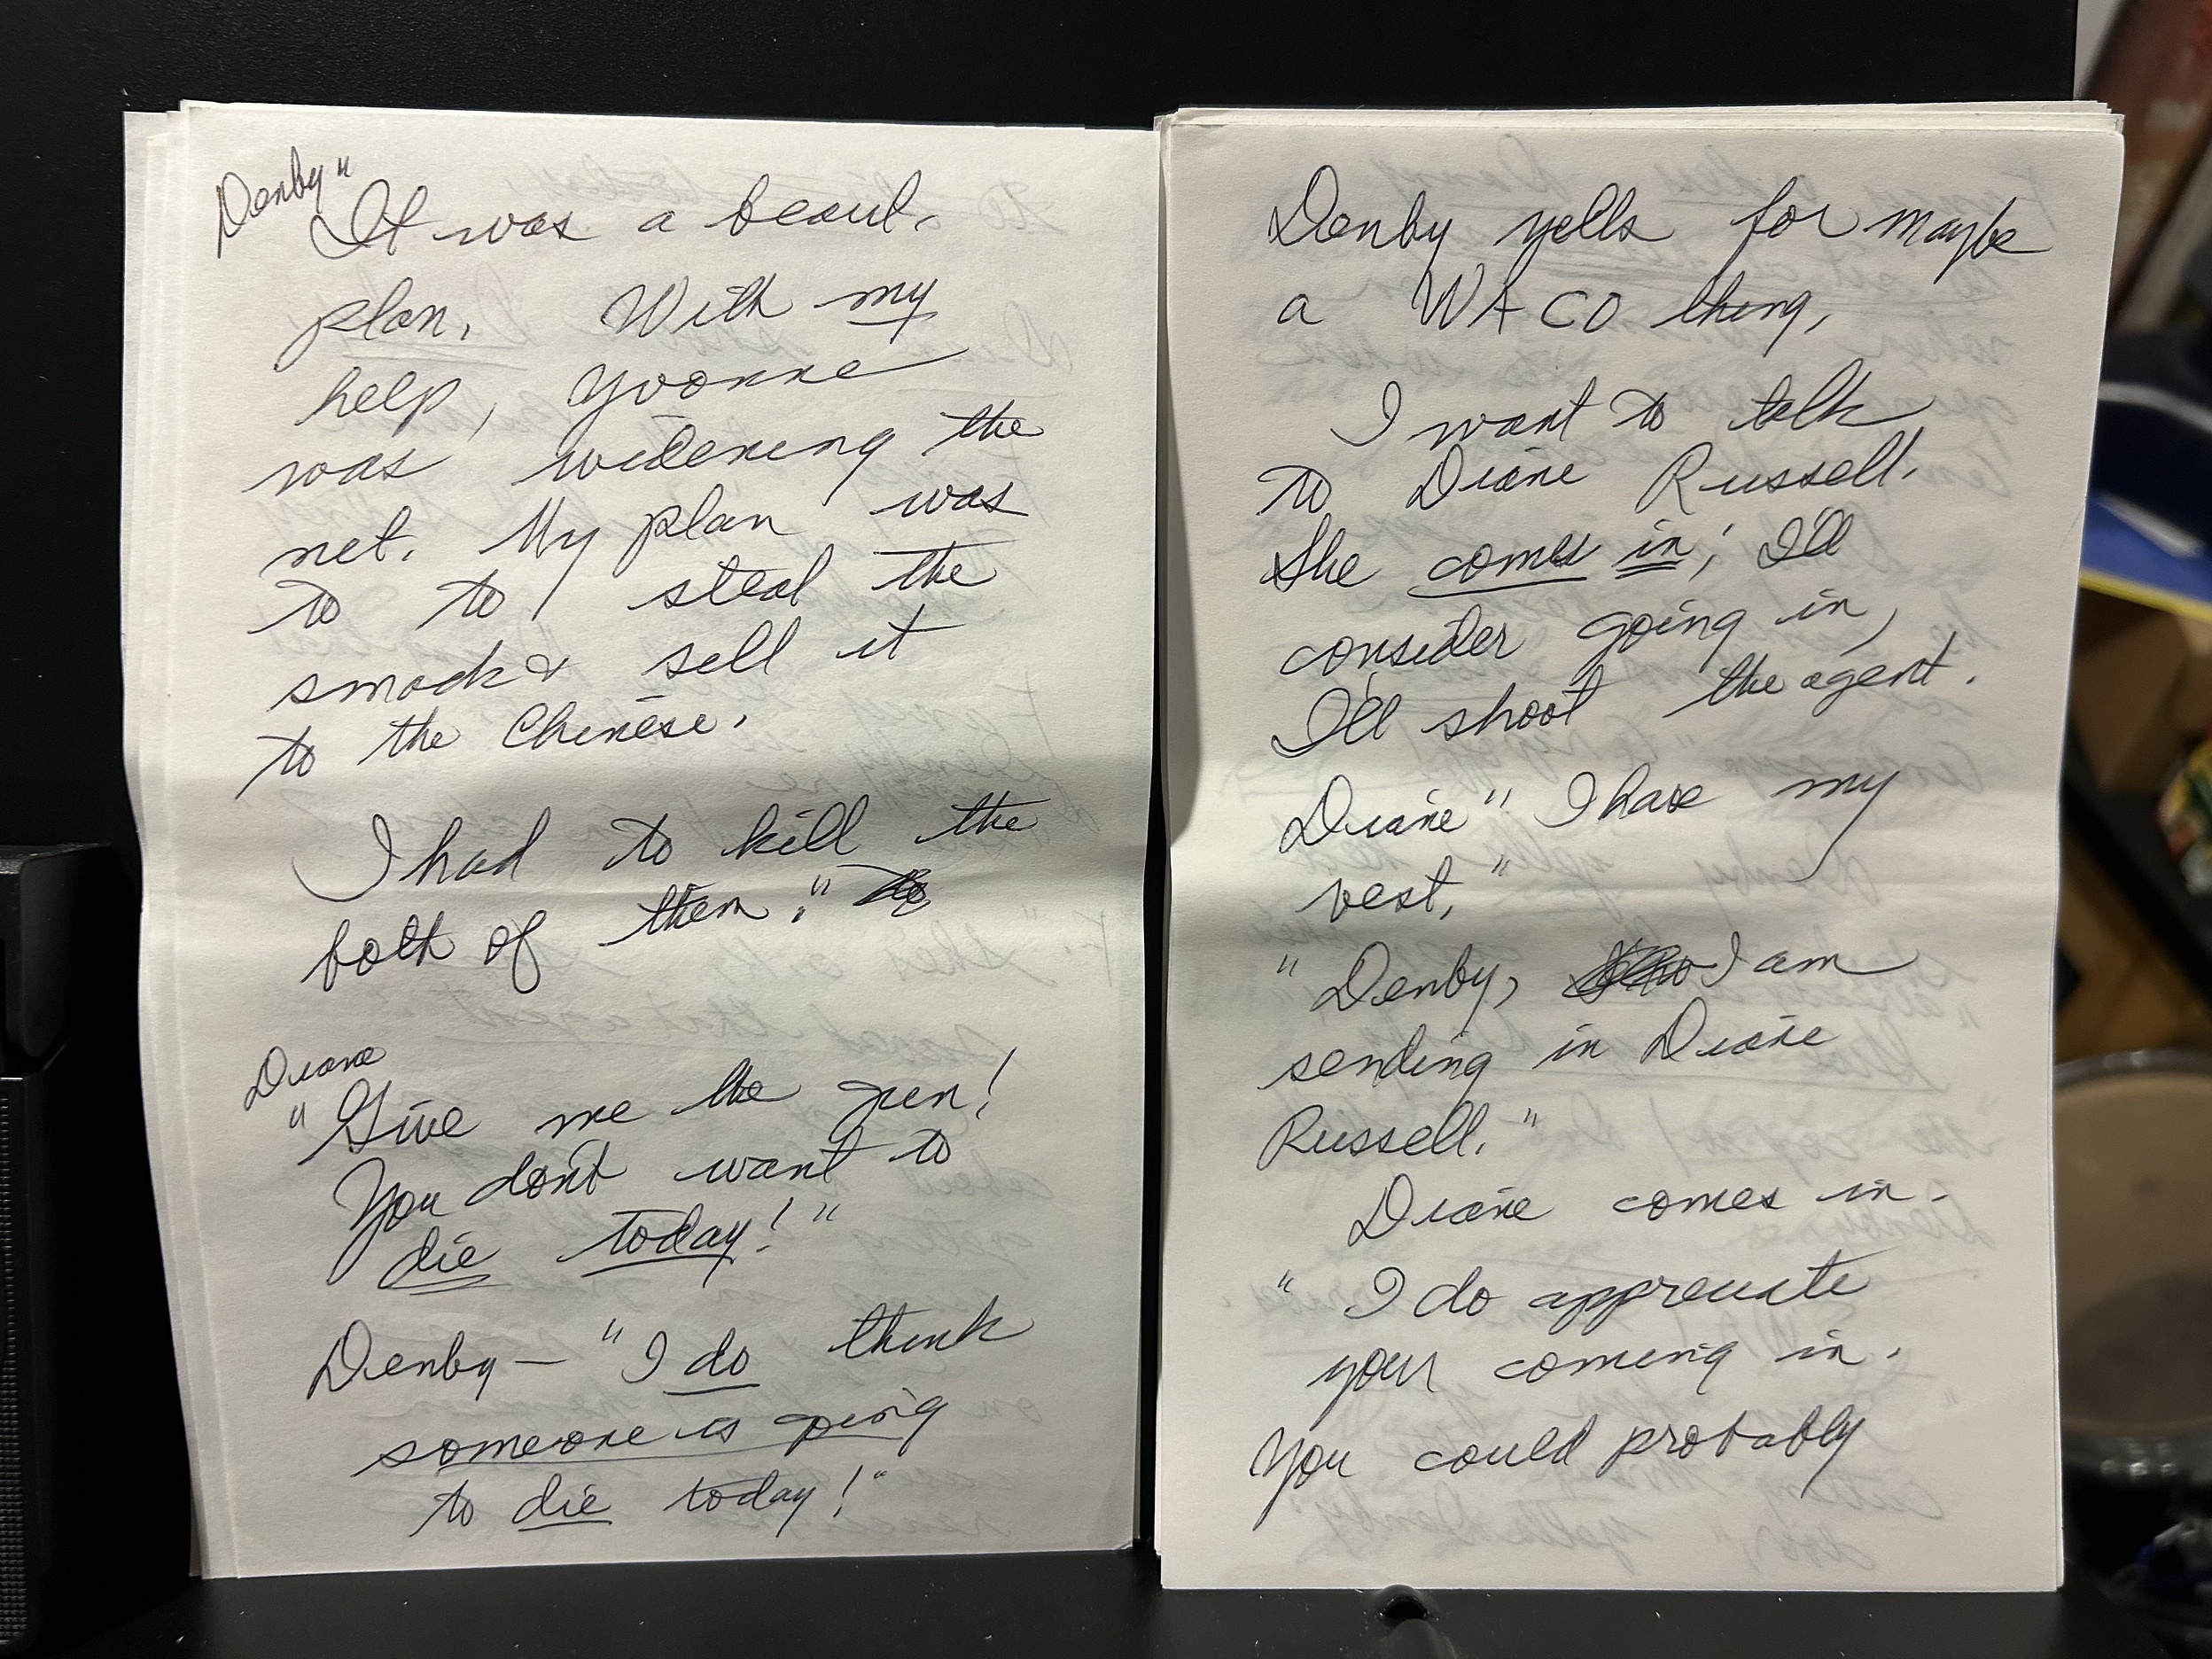 Denby "
It was a beaut.
plan. With my
help, Yvonne
was widening the
net. My plan was
to to steal the
smack & sell it
to the Chinese.
I had to kill the
both of them."
Diane
"Give me the gun!
You don't want to
die today!"
Denby — "I do think
someone is going
to die today!"
Denby yells for maybe
a WACO thing,
I want to talk
to Diane Russell.
She comes in; I'll
consider going in,
I'll shoot the agent.
Diane "I have my
vest."
"Denby, I am
sending in Diane
Russell."
Diane comes in.
"I do appreciate
your coming in.
You could probably